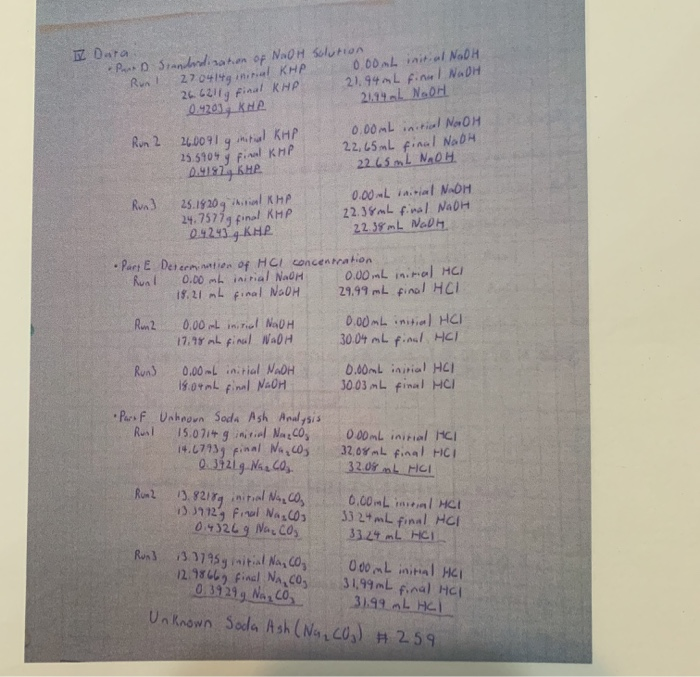 IV Data
• Part D Standardization of NaOH Solution
Run 1 27.0414g initial KHP 0.00mL initial NaOH
26.6211g final KHP 21.94mL final NaOH
0.4203g KHP 21.94mL NaOH
Run 2 26.0091 g initial KHP 0.00mL initial NaOH
25.5904 g final KHP 22.65mL final NaOH
0.4187g KHP 22.65mL NaOH
Run 3 25.1820g initial KHP 0.00mL initial NaOH
24.7577g final KHP 22.38mL final NaOH
0.4243 g KHP 22.38mL NaOH
• Part E Determination of HCl concentration
Run 1 0.00 mL initial NaOH 0.00mL initial HCl
18.21 mL final NaOH 29.99 mL final HCl
Run 2 0.00 mL initial NaOH 0.00mL initial HCl
17.98 mL final NaOH 30.04 mL final HCl
Run 3 0.00mL initial NaOH 0.00mL initial HCl
18.04mL final NaOH 30.03 mL final HCl
• Part F Unknown Soda Ash Analysis
Run 1 15.0714 g initial Na₂CO₃ 0.00mL initial HCl
14.6793g final Na₂CO₃ 32.08mL final HCl
0.3921g Na₂CO₃ 32.08 mL HCl
Run 2 13.8218g initial Na₂CO₃ 0.00mL initial HCl
final Na₂CO₃ 33.24mL final HCl
0.4326g Na₂CO₃ 33.24 mL HCl
Run 3 13.3795g initial Na₂CO₃ 0.00mL initial HCl
12.9866g final Na₂CO₃ 31.99mL final HCl
0.3929g Na₂CO₃ 31.99 mL HCl
Unknown Soda Ash (Na₂CO₃) # 259